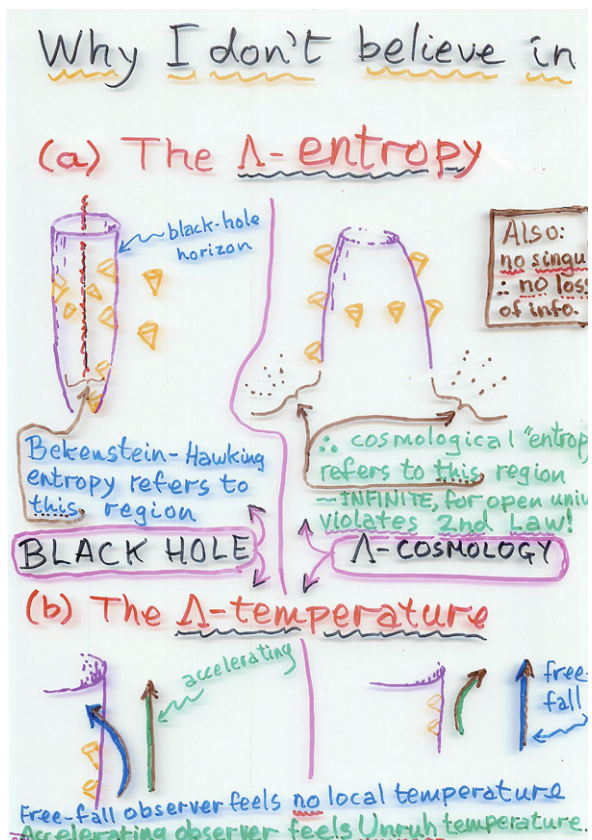 Why I don't believe in
(a) The Λ-entropy
black-hole
horizon
Also:
no singu
∴ no loss
of info.
Bekenstein-Hawking
entropy refers to
this region
∴ cosmological "entrop
refers to this region
—INFINITE, for open univ
violates 2nd Law!
BLACK HOLE
Λ-COSMOLOGY
(b) The Λ-temperature
accelerating
free-
fall
Free-fall observer feels no local temperature
Accelerating observer feels Unruh temperature.